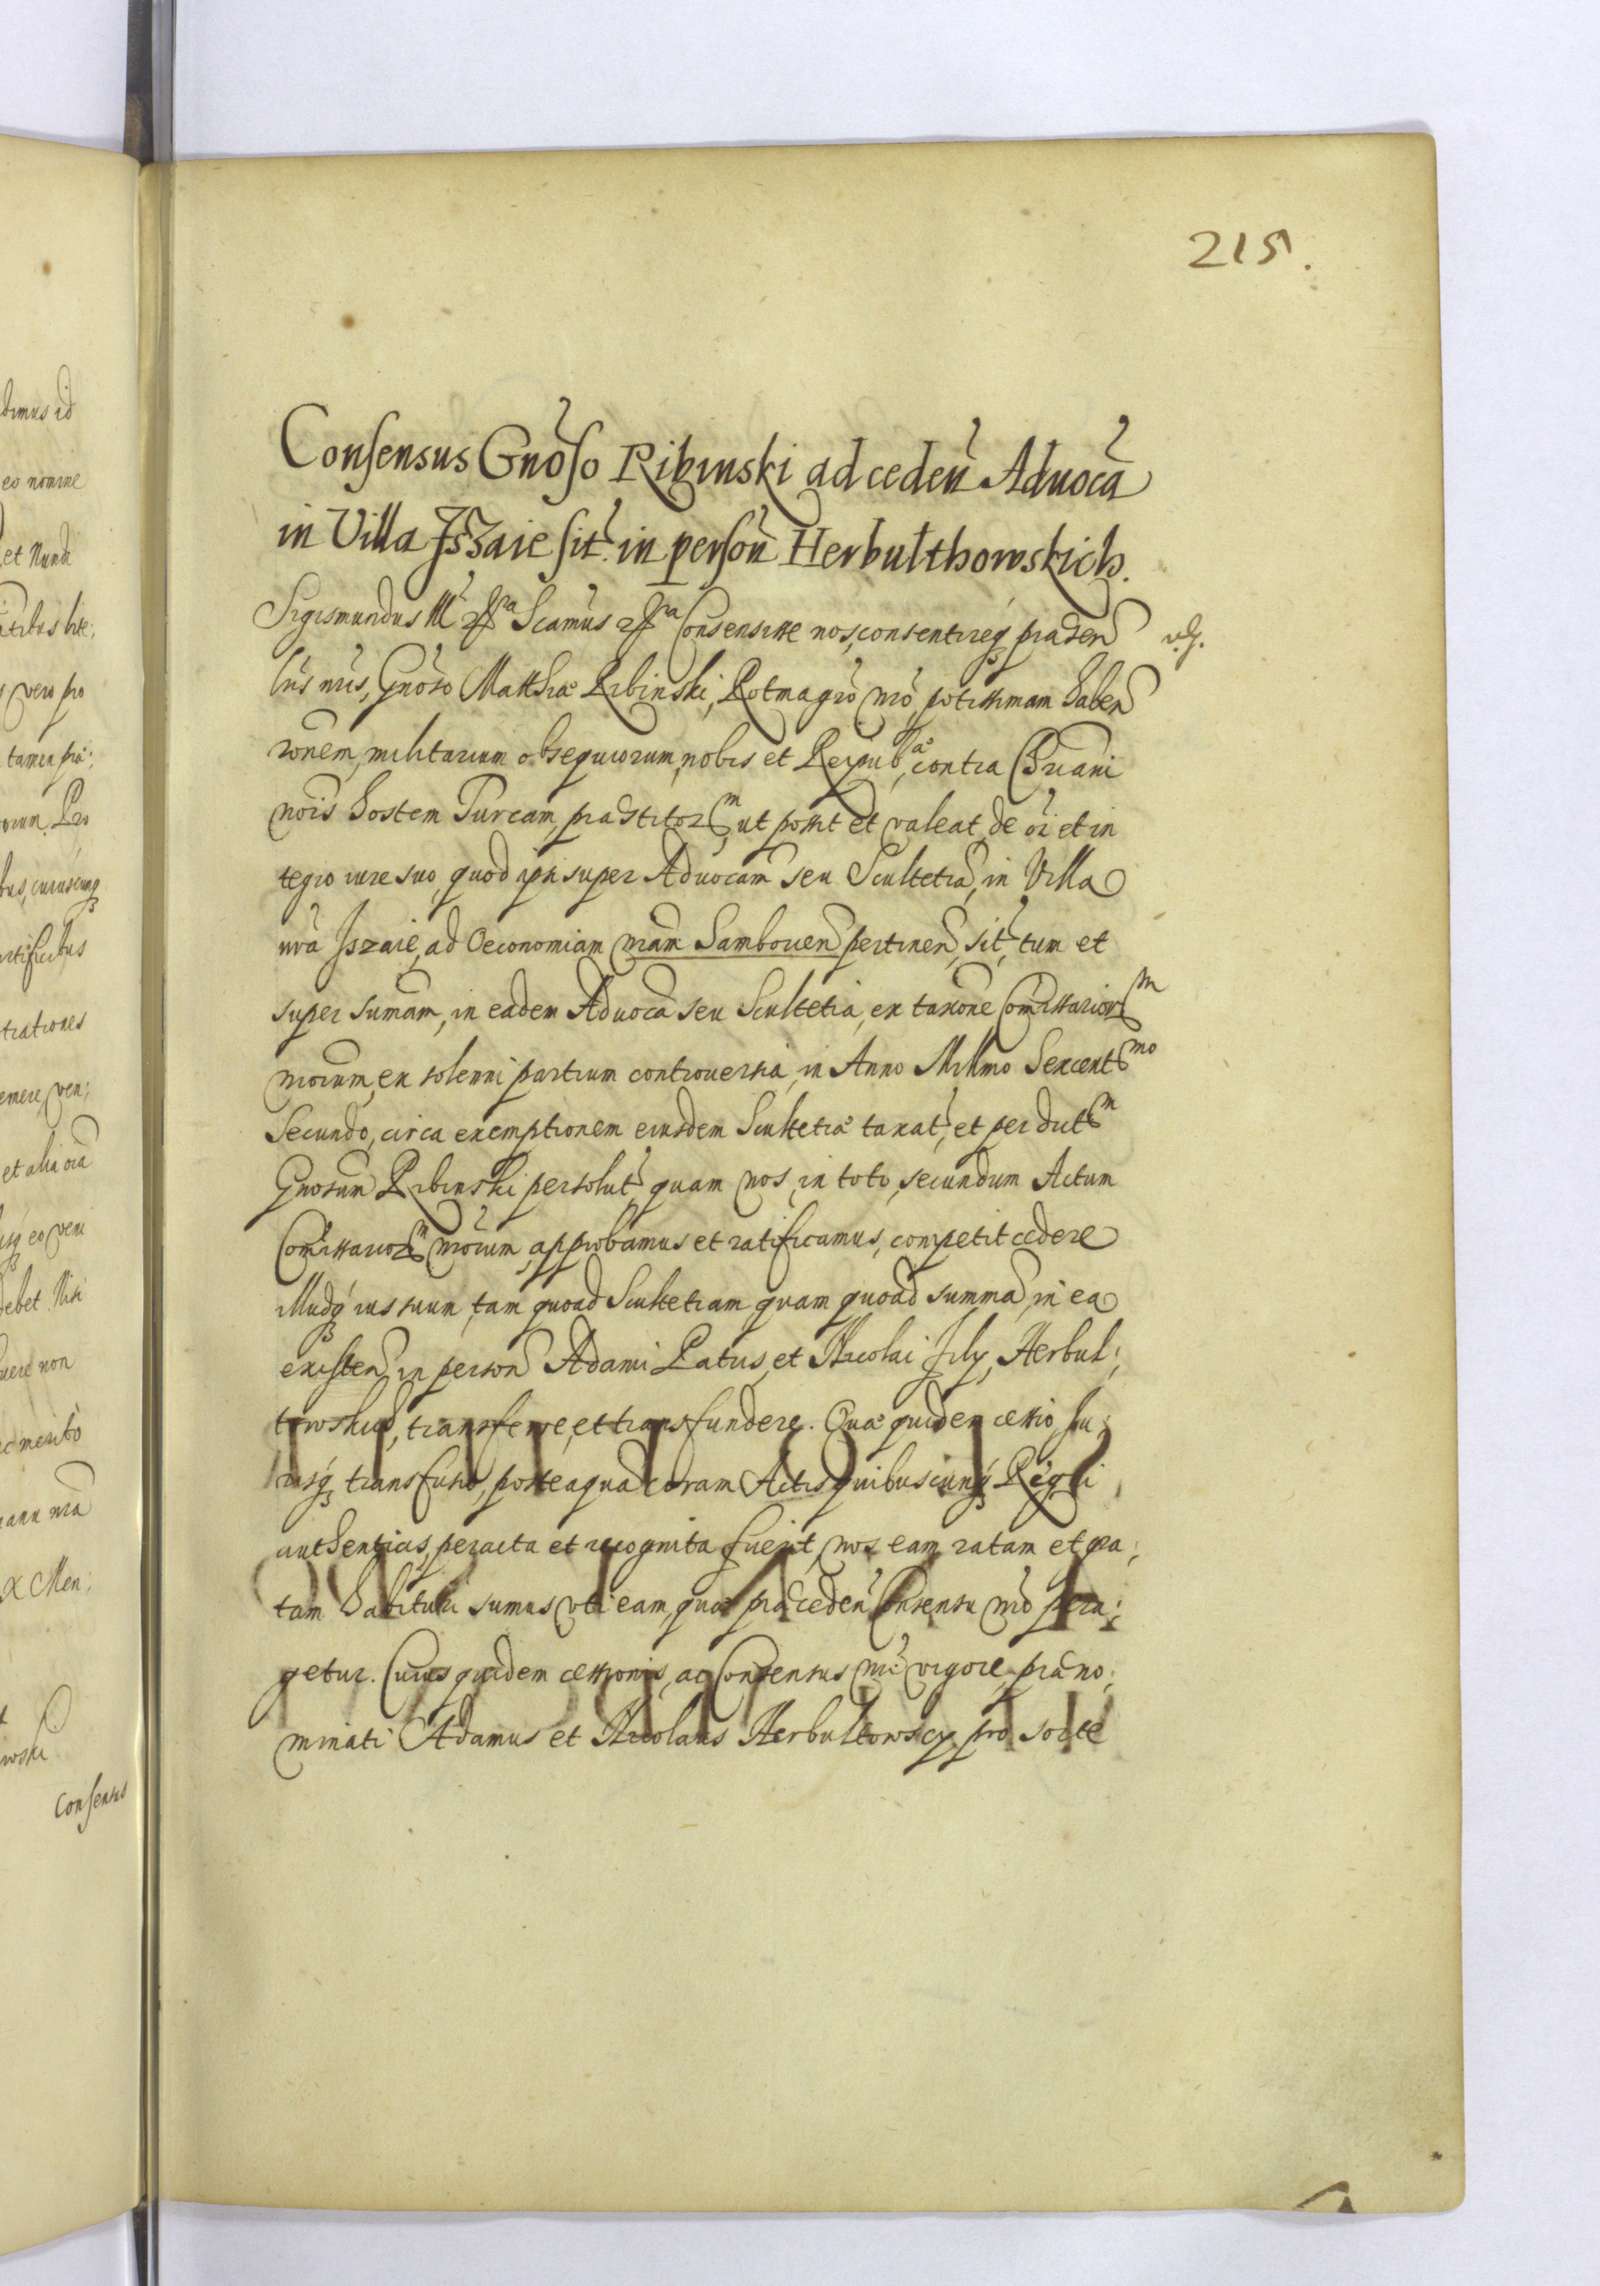 215.
Consensus Gnoso Ribinski ad ceden Aduoca
in Villa Iszaie sit. in person Herbulthowskich.
Sigismundus III Scamus Consensisse nos, consentireq praesen
lris nris, Gnoso Matthiae Ribinski, Rotmagro nro, potissimam haben
ronem, militarium obsequiorum, nobis et Reipub ae, contra Chriani
nois hostem Turcam, praestitor m, ut possit et valeat, de oi et in
tegro iure suo, quod ipsi super Aduocam seu Scultetia, in Villa
nra Iszaie, ad Oeconomiam nram Samborien pertinen, sit, tum et
super sumam, in eadem Aduoca seu Scultetia, ex taxone Comissarior m
nrorum, ex solenni partium controuersia, in Anno Millmo Sexcent mo
Secundo, circa exemptionem eiusdem Scultetiae taxat, et per dict m
Gnosum Ribinski persolut, quam nos, in toto, secundum Actum
Comissarior m nrorum, approbamus et ratificamus, competit cedere
illudq ius suum, tam quoad Scultetiam quam quoad summa, in ea
existen, in person Adami Patris, et Nicolai Fily, Herbul:
towskich, transferre, et transfundere. Quae quidem cessio, Iu:
risq transfusio, posteaqua coram Actis quibuscunq Regni
authenticis, peracta et recognita fuerit, nos eam ratam et gra:
tam habituri sumus, vti eam, quae praeceden Consensu nro pera:
getur. Cuius quidem cessionis, ac Consensus nri vigore, praeno:
minati Adamus et Nicolaus Herbultowscy, pro sorte